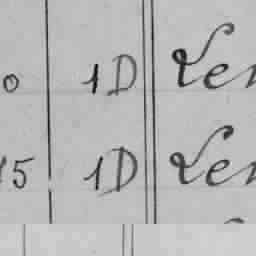 0 1D Len
15 1D Len